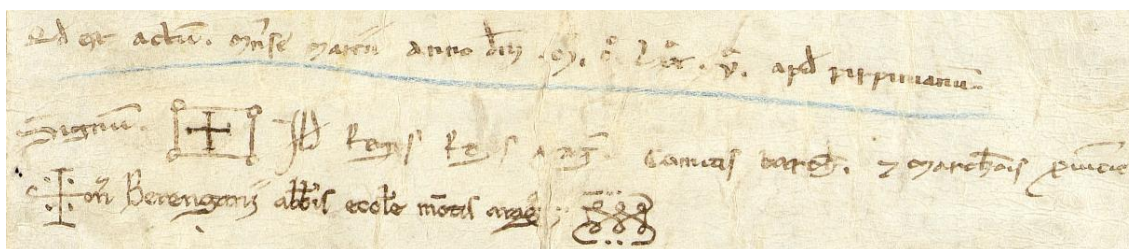 Qd est actu. mense marcii anno dni .M. C. Lxx. v. apd pirpinianu
Signu Ildfi Regis Reg Arag Comitis barch. & Marchionis puincie
Berengarii abbis ecole motis arag